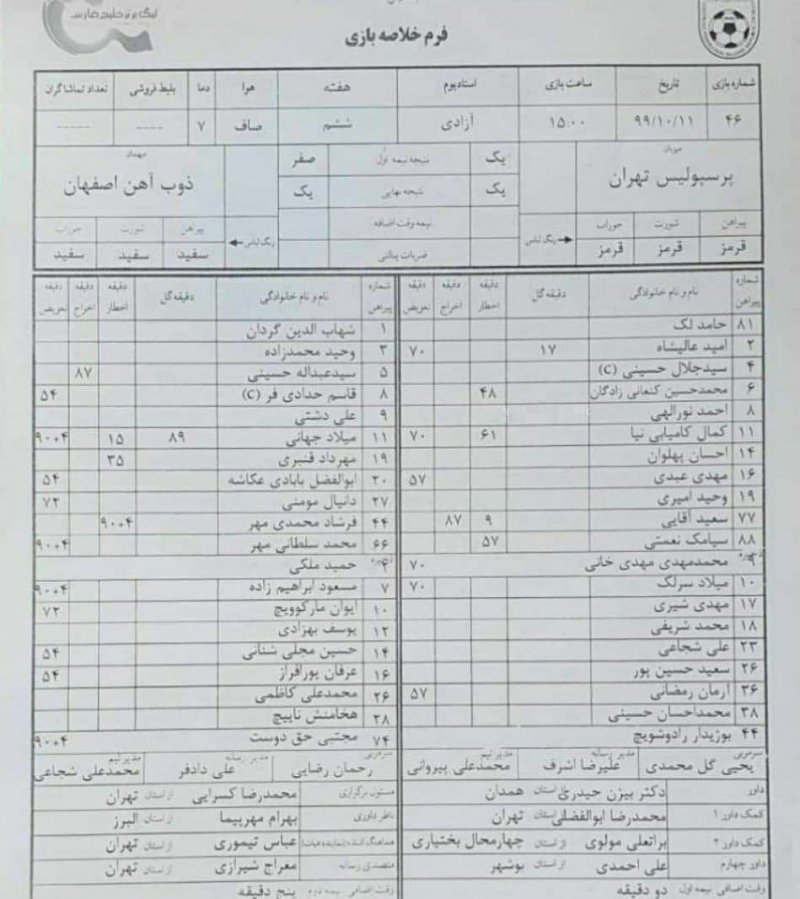 لیگ برتر خلیج فارس
فرم خلاصه بازی
شماره بازی تاریخ ساعت بازی استادیوم هفته هوا دما بلیط فروشی تعداد تماشاگران
۴۶ ۹۹/۱۰/۱۱ ۱۵:۰۰ آزادی ششم صاف ۷ ---- -----
میزبان یک نتیجه نیمه اول صفر میهمان
پرسپولیس تهران یک نتیجه نهایی یک ذوب آهن اصفهان
پیراهن شورت جوراب رنگ لباس نیمه وقت اضافه رنگ لباس پیراهن شورت جوراب
قرمز قرمز قرمز ضربات پنالتی سفید سفید سفید
شماره پیراهن نام و نام خانوادگی دقیقه گل دقیقه اخطار دقیقه اخراج دقیقه تعویض
۸۱ حامد لک
۲ امید عالیشاه ۱۷ ۷۰
۴ سیدجلال حسینی (C)
۶ محمدحسین کنعانی زادگان ۴۸
۸ احمد نورالهی
۱۱ کمال کامیابی نیا ۶۱ ۷۰
۱۴ احسان پهلوان
۱۶ مهدی عبدی ۵۷
۱۹ وحید امیری
۷۷ سعید آقایی ۹ ۸۷
۸۸ سیامک نعمتی ۵۷
۹ محمدمهدی مهدی خانی ۷۰
۱۰ میلاد سرلک ۷۰
۱۷ مهدی شیری
۱۸ محمد شریفی
۲۳ علی شجاعی
۲۶ سعید حسین پور
۳۶ آرمان رمضانی ۵۷
۳۸ محمداحسان حسینی
۴۴ بوژیدار رادوشویچ
شماره پیراهن نام و نام خانوادگی دقیقه گل دقیقه اخطار دقیقه اخراج دقیقه تعویض
۱ شهاب الدین گردان
۳ وحید محمدزاده
۵ سیدعبداله حسینی ۸۷
۸ قاسم حدادی فر (C) ۵۴
۹ علی دشتی
۱۱ میلاد جهانی ۸۹ ۱۵ ۹۰+۴
۱۹ مهرداد قنبری ۳۵
۲۰ ابوالفضل بابادی عکاشه ۵۴
۲۷ دانیال مومنی ۷۲
۴۴ فرشاد محمدی مهر ۹۰+۴
۶۶ محمد سلطانی مهر ۹۰+۴
حمید ملکی
۷ مسعود ابراهیم زاده ۹۰+۴
۱۰ ایوان مارکوویچ ۷۲
۱۲ یوسف بهزادی
۱۴ حسین مجلی شنانی ۵۴
۱۶ عرفان پورافراز ۵۴
۲۶ محمدعلی کاظمی
۲۸ هخامنش ناییچ
۷۴ مجتبی حق دوست ۹۰+۴
سرمربی یحیی گل محمدی مدیر رسانه علیرضا اشرف مدیر تیم محمدعلی پیروانی
سرمربی رحمان رضایی مدیر رسانه علی دادفر مدیر تیم محمدعلی شجاعی
داور دکتر بیژن حیدری از استان همدان
کمک داور ۱ محمدرضا ابوالفضلی از استان تهران
کمک داور ۲ براتعلی مولوی از استان چهارمحال بختیاری
داور چهارم علی احمدی از استان بوشهر
وقت اضافی نیمه اول دو دقیقه
مسئول برگزاری محمدرضا کسرایی از استان تهران
ناظر داوری بهرام مهرپیما از استان البرز
هماهنگ کننده (نماینده هیات) عباس تیموری از استان تهران
متصدی رسانه معراج شیرازی از استان تهران
وقت اضافی نیمه دوم پنج دقیقه